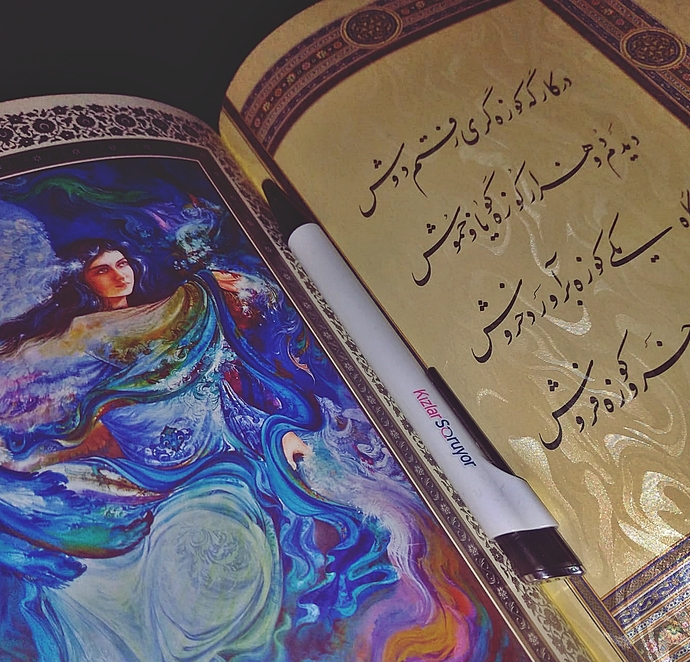 در کارگه کوزه‌گری رفتم دوش
دیدم دو هزار کوزه گویا و خموش
یکی کوزه برآورد خروش
کوزه فروش
KızlarSoruyor